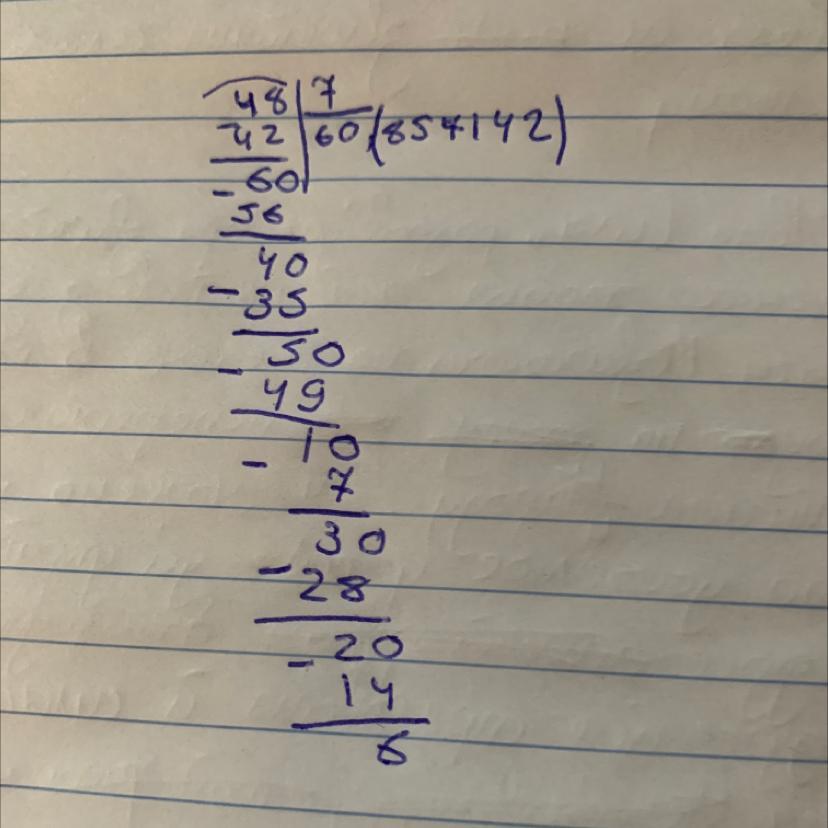 48 | 7
- 42 | 60,(857142)
- 60
56
40
- 35
50
- 49
10
- 7
30
- 28
20
- 14
6